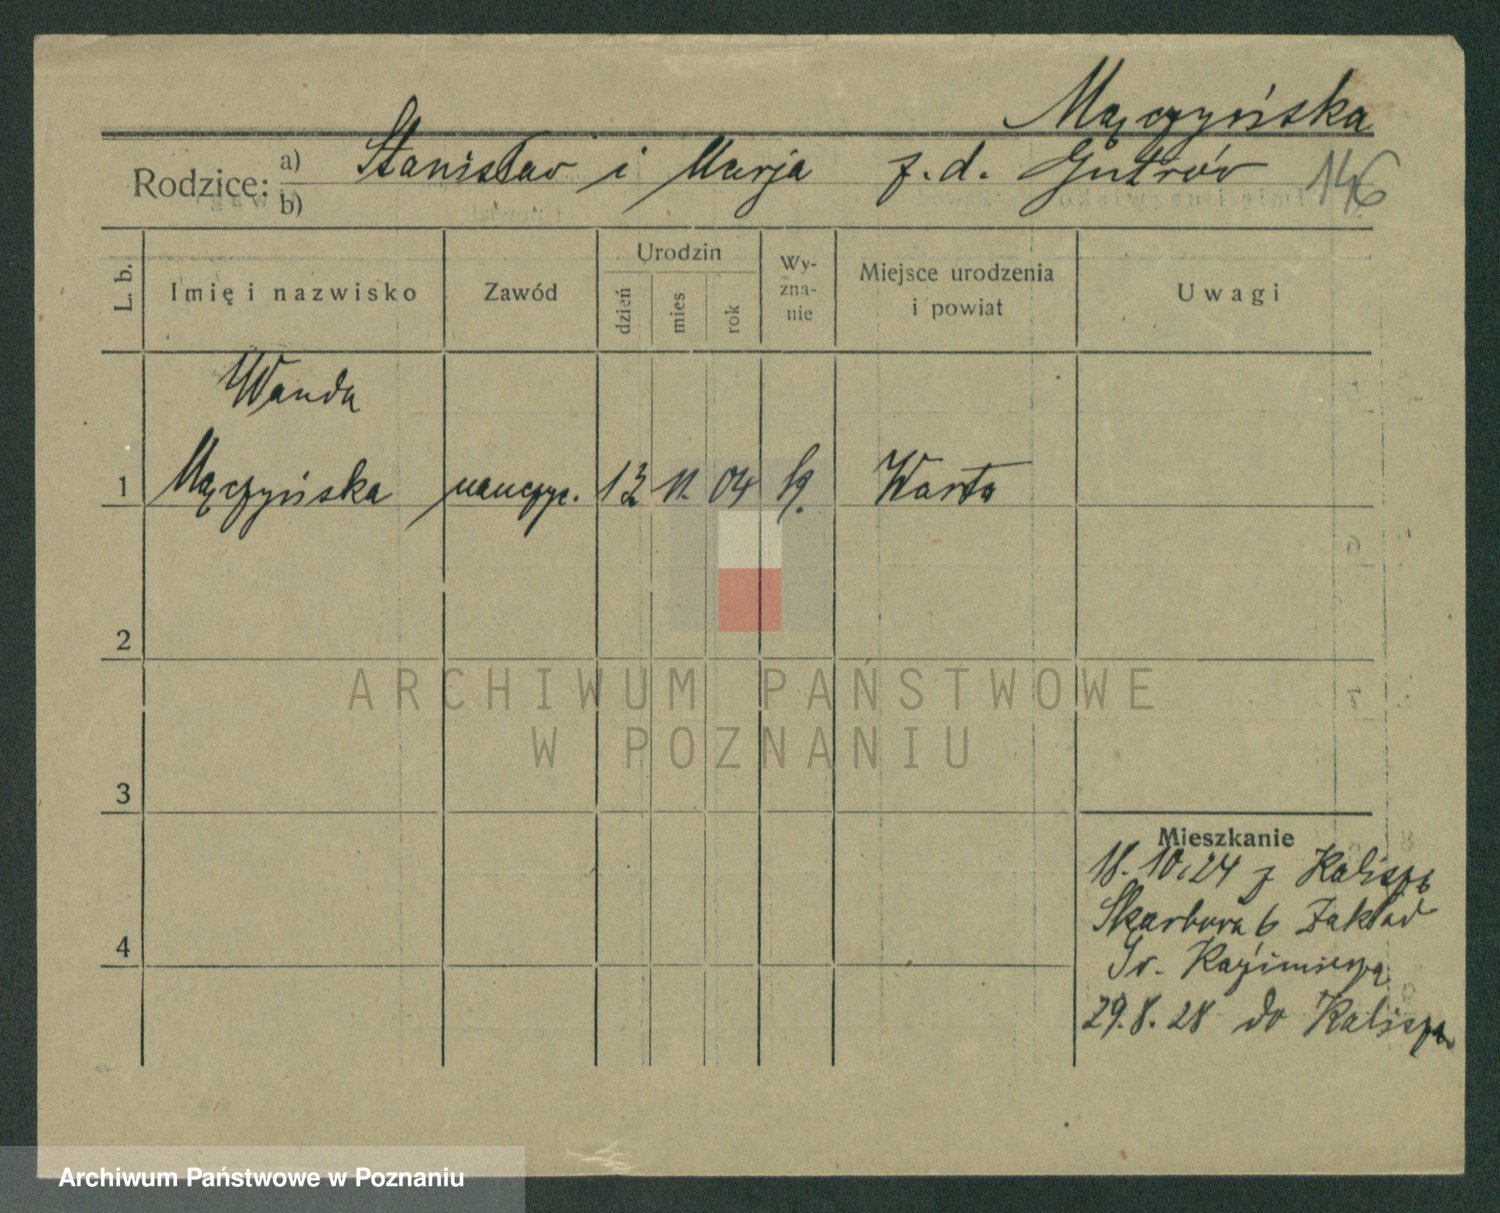 Mączyńska
Rodzice: a) Stanisław i Marja z. d. Gutrów 146
b)
L. b. Imię i nazwisko Zawód Urodzin dzień mies rok Wy-zna-nie Miejsce urodzenia i powiat Uwagi
Wanda
1 Mączyńska nauczyc. 13 11. 04 Warta
2
ARCHIWUM PAŃSTWOWE
W POZNANIU
3
Mieszkanie
18.10.24 z Kalisza
Skarbowa 6 Zakład
4
Św. Kazimierza
29.8.28 do Kalisza
Archiwum Państwowe w Poznaniu